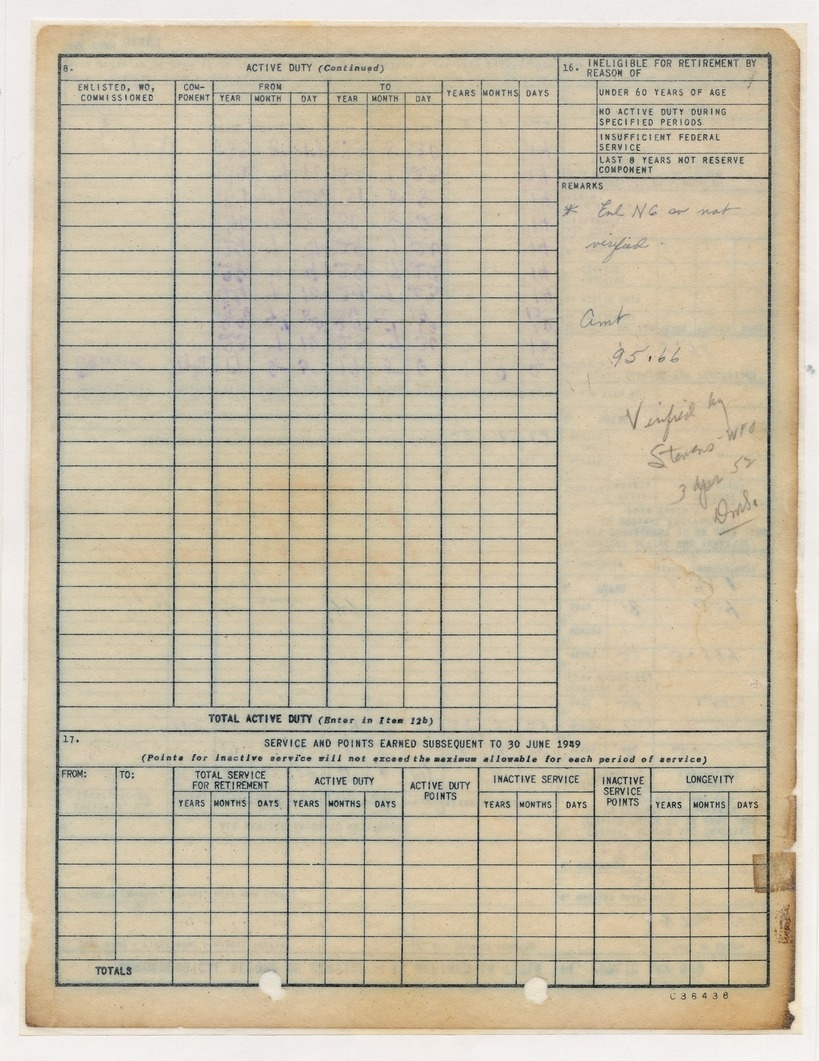 8. ACTIVE DUTY (Continued)
ENLISTED, WO, COMMISSIONED
COM-PONENT
FROM
TO
YEAR MONTH DAY YEAR MONTH DAY
YEARS MONTHS DAYS
16. INELIGIBLE FOR RETIREMENT BY
REASON OF
UNDER 60 YEARS OF AGE
NO ACTIVE DUTY DURING
SPECIFIED PERIODS
INSUFFICIENT FEDERAL
SERVICE
LAST 8 YEARS NOT RESERVE
COMPONENT
REMARKS
* Enl NG sv not
verified.
Amt
95.66
Verified by
Stevens - WFO
3 Apr 52
DMS.
TOTAL ACTIVE DUTY (Enter in Item 12b)
17.
SERVICE AND POINTS EARNED SUBSEQUENT TO 30 JUNE 1949
(Points for inactive service will not exceed the maximum allowable for each period of service)
FROM: TO:
TOTAL SERVICE
FOR RETIREMENT
ACTIVE DUTY
ACTIVE DUTY
POINTS
INACTIVE SERVICE
INACTIVE
SERVICE
POINTS
LONGEVITY
YEARS MONTHS DAYS YEARS MONTHS DAYS YEARS MONTHS DAYS YEARS MONTHS DAYS
TOTALS
C36438